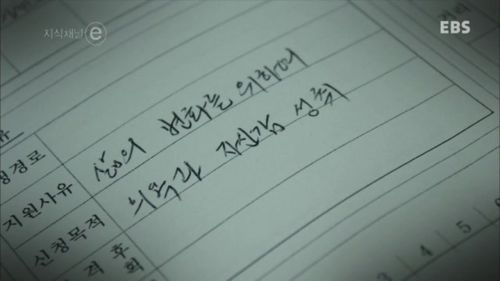 지식채널 e
EBS
경로
지원사유
삶의 변화를 위하여
신청목적
의욕과 자신감 성취
격 후
회
3 4 5 6